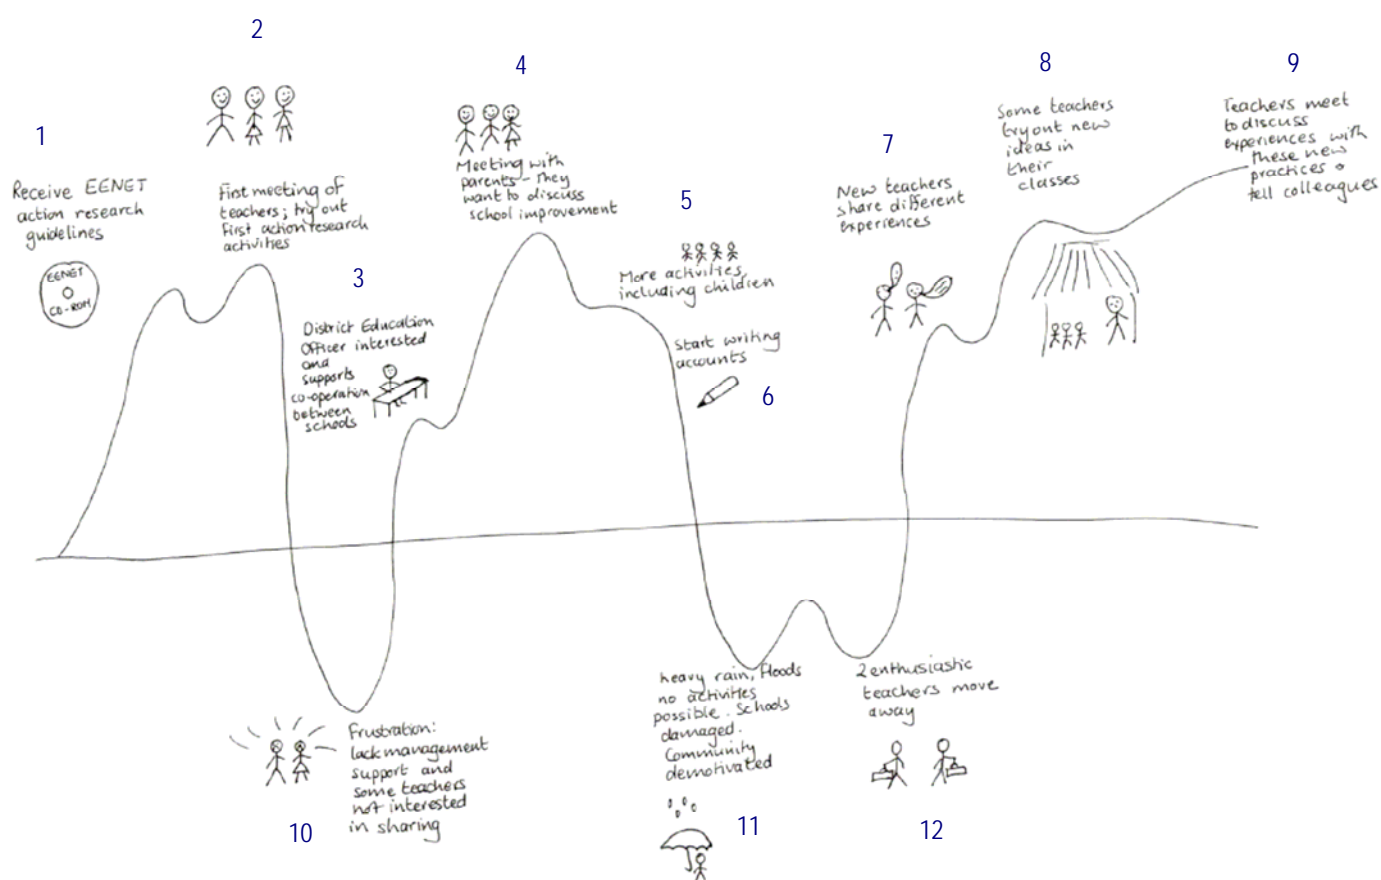 1
Receive EENET
action research
guidelines
EENET
CD-ROM
2
First meeting of
teachers; try out
first action research
activities
3
District Education
Officer interested
and
supports
co-operation
between
schools
4
Meeting with
parents - they
want to discuss
school improvement
5
More activities,
including children
Start writing
accounts
6
7
New teachers
share different
experiences
8
Some teachers
try out new
ideas in
their
classes
9
Teachers meet
to discuss
experiences with
these new
practices &
tell colleagues
Frustration:
lack management
support and
some teachers
not interested
in sharing
10
heavy rain, floods
no activities
possible. Schools
damaged.
Community
demotivated
11
2 enthusiastic
teachers move
away
12